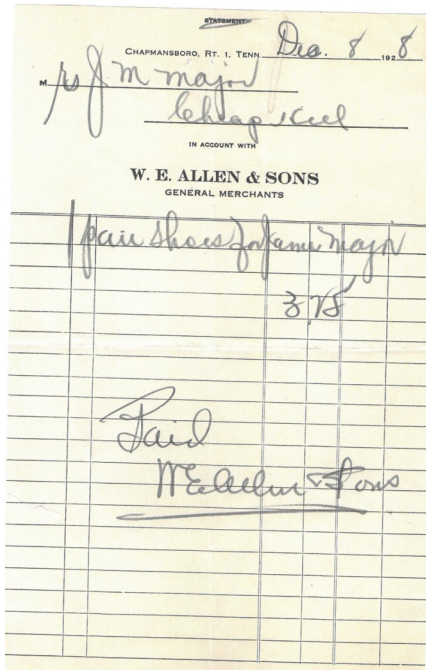 STATEMENT
CHAPMANSBORO, RT. 1, TENN. Dec. 8 1928
Mrs J M Major
Cheap Hill
IN ACCOUNT WITH
W. E. ALLEN & SONS
GENERAL MERCHANTS
1 pair shoes for Major
3 75
Paid
W E Allen & Sons